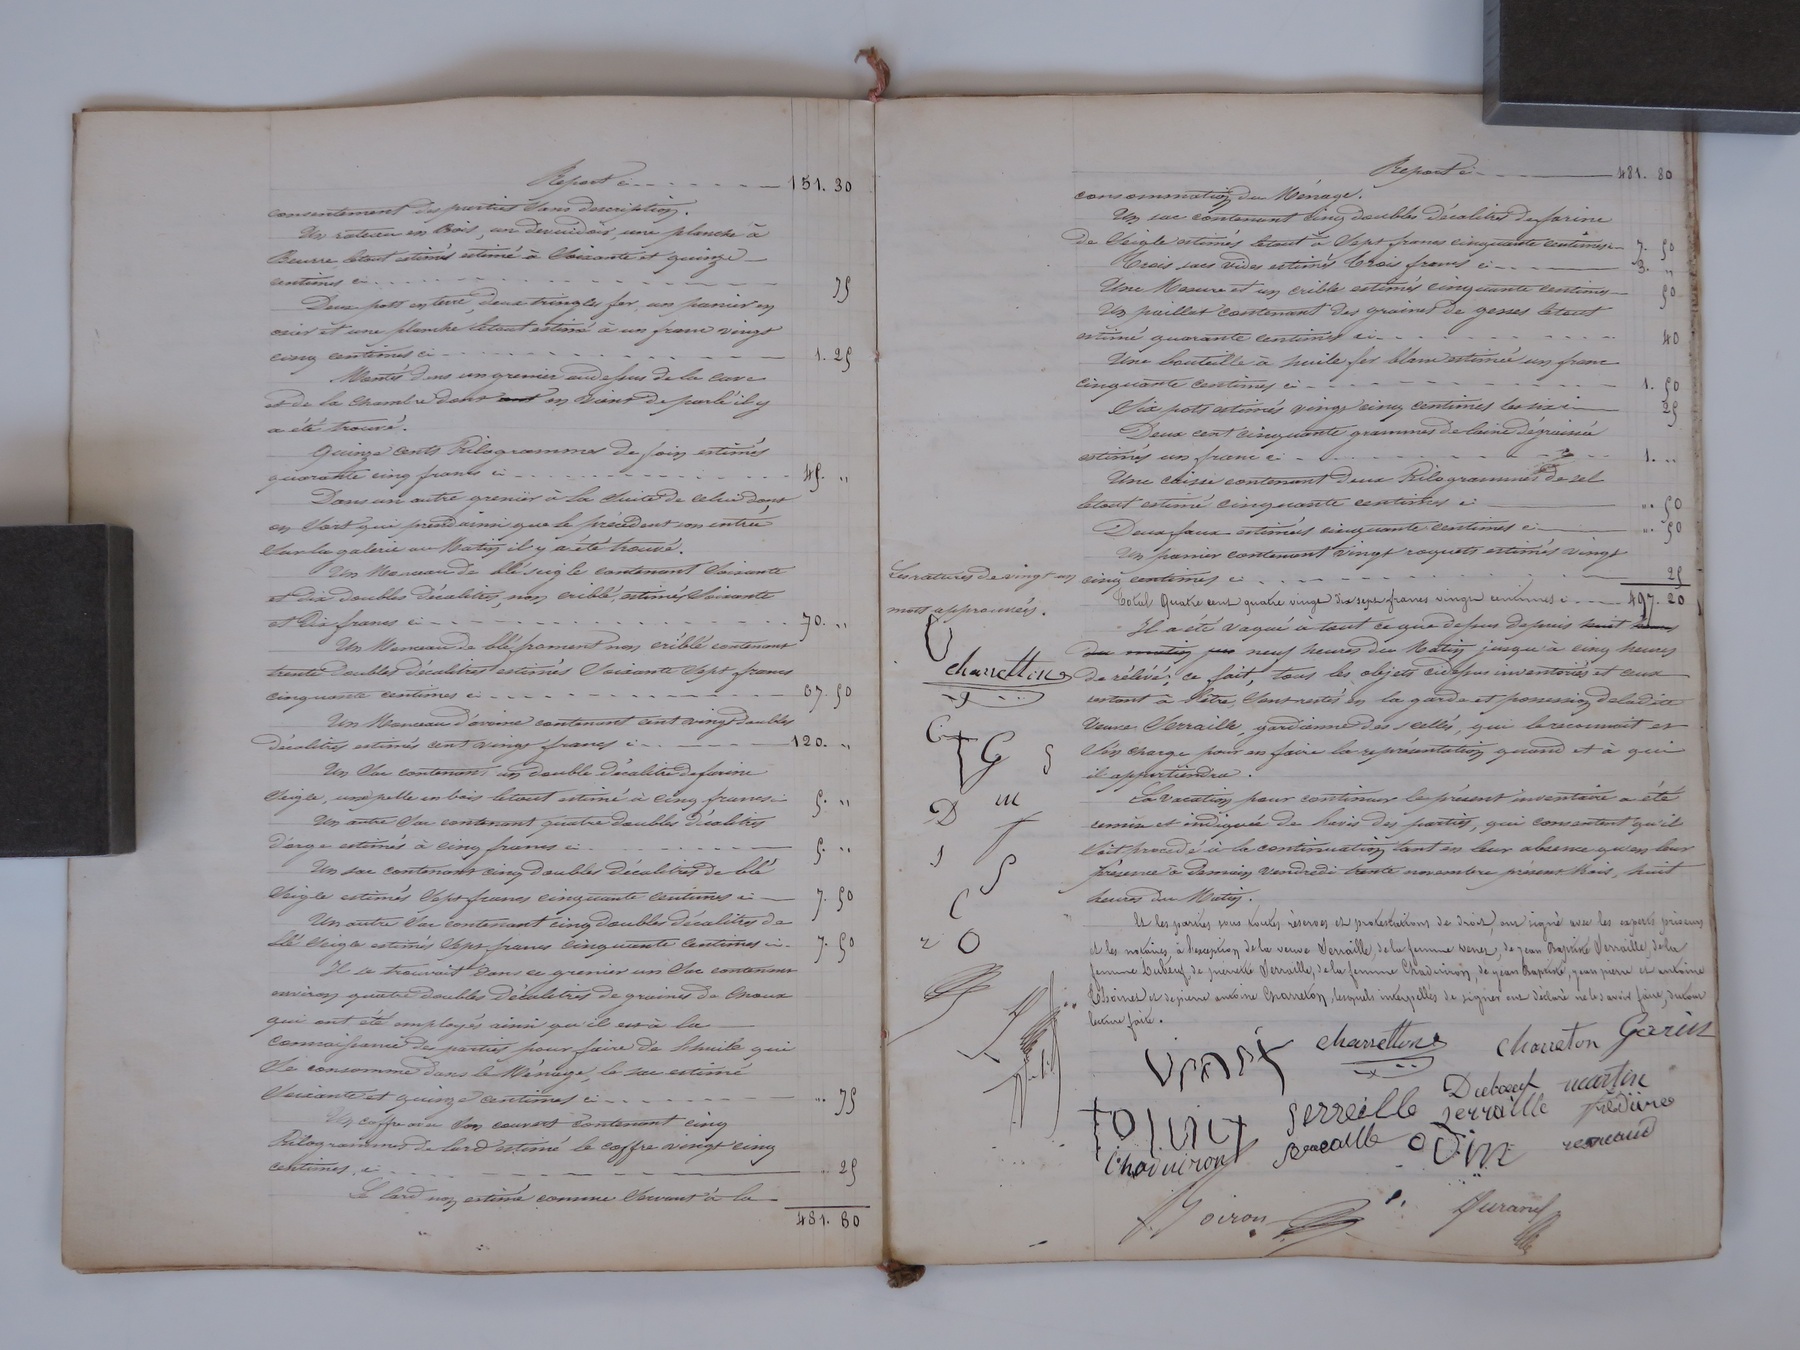 Report ci 151. 30
consentement des parties sans description.
Un rateau en Bois, un devidoir, une planche à
Beurre letout estimés estimé à Soixante et quinze
centimes ci 75
Deux pots en terre, deux tringles fer, un panier en
osier et une planche letout estimé à un franc vingt
cinq centimes ci 1. 25
Montés dans un grenier au dessus de la cave
et de la chambre dont on vient de parlé il y
a été trouvé.
Quinze cents Kilogrammes de foin estimés
quarante cinq francs ci 45. "
Dans un autre grenier à la suite de celui dont
on sort qui prend ainsi que le précédent son entrée
sur la galerie au Matin il y a été trouvé.
Un Monceau de blé seigle contenant Soixante
et dix doubles décalitres, non criblé, estimés Soixante
et Dix francs ci 70. "
Un Monceau de blé froment non criblé contenant
trente doubles décalitres estimés Soixante Sept francs
cinquante centimes ci 67. 50
Un Monceau d'avoine contenant cent vingt doubles
décalitres estimés cent vingt francs ci 120. "
Un Sac contenant un double décalitre de farine
Seigle, une pelle en bois letout estimé à cinq francs ci 5. "
Un autre Sac contenant quatre doubles décalitres
d'orge estimés à cinq francs ci 5. "
Un sac contenant cinq doubles décalitres de blé
Seigle estimés Sept francs cinquante centimes ci 7. 50
Un autre Sac contenant cinq doubles décalitres de
blé Seigle estimés Sept francs cinquante centimes ci 7. 50
Il se trouvait dans ce grenier un Sac contenant
environ quatre doubles Décalitres de graines de Choux
qui ont été employés ainsi qu'il est à la
connaissance des parties pour faire de l'huile qui
Se consomme dans le Ménage, le sac estimé
Soixante et quinze centimes ci " 75
Un coffre avec son couvert contenant cinq
Kilogrammes de lard estimé le coffre vingt cinq
centimes, ci " 25
Le lard non estimé comme Servant à la
481. 80
Report ci 481. 80
consommation du Ménage.
Un sac contenant cinq doubles décalitres de farine
de Seigle estimés letout à Sept francs cinquante centimes 7. 50
Trois sacs vides estimés Trois francs ci 3. "
Une Mesure et un crible estimés cinquante centimes 50
Un paillat contenant des graines de gesses letout
estimé quarante centimes ci 40
Une bouteille à huile fer blanc estimée un franc
cinquante centimes ci 1. 50
Six pots estimés vingt cinq centimes les six ci 25
Deux cent cinquante grammes de laine dégraissée
estimés un franc ci 1. "
Une caisse contenant deux Kilogrammes de sel
letout estimé cinquante centimes ci " 50
Deux faux estimées cinquante centimes ci " 50
Un panier contenant vingt roquets estimés vingt
cinq centimes ci 25
Total Quatre cent quatre vingt dix sept francs vingt centimes ci 497. 20
Les ratures de vingt un
mots approuvées.
Il a été vaqué à tout ce que dessus depuis huit heures
du matin neuf heures du Matin jusqu'à cinq heures
de rélévé; ce fait, tous les objets cidessus inventoriés et ceux
restant à l'être, sont restés en la garde et possession deladite
Veuve Serraille, gardienne des scellés, qui le reconnait et
S'en charge pour en faire la représentation quand et à qui
il appartiendra.
La vacation pour continuer le présent inventaire a été
remise et indiquée de l'avis des parties, qui consentent qu'il
Soit procédé à la continuation tant en leur absence qu'en leur
présence à Demain vendredi trente novembre présent Mois, huit
heures du Matin.
Et les parties sous toutes réserves et protestations de droit, ont signé avec les experts priseurs
et les notaires, à l'exception de la veuve Serraille, de la femme Venet, de Jean Baptiste Serraille, de la
femme Duboeuf, de pierrette Serraille, de la femme Chaduiron, de Jean Baptiste, Jean pierre et antoine
Thoinet et de pierre antoine Charreton, lesquels interpellés de signer ont déclaré ne le savoir faire, du tout
lecture faite.
charretton
C G S
D m
f
S
C
O
charretton
charreton
Garin
Duboeuf
martin
serreille
serraille
frédière
Chaduiron
serraille
odin
renaud
Poiron
Durand